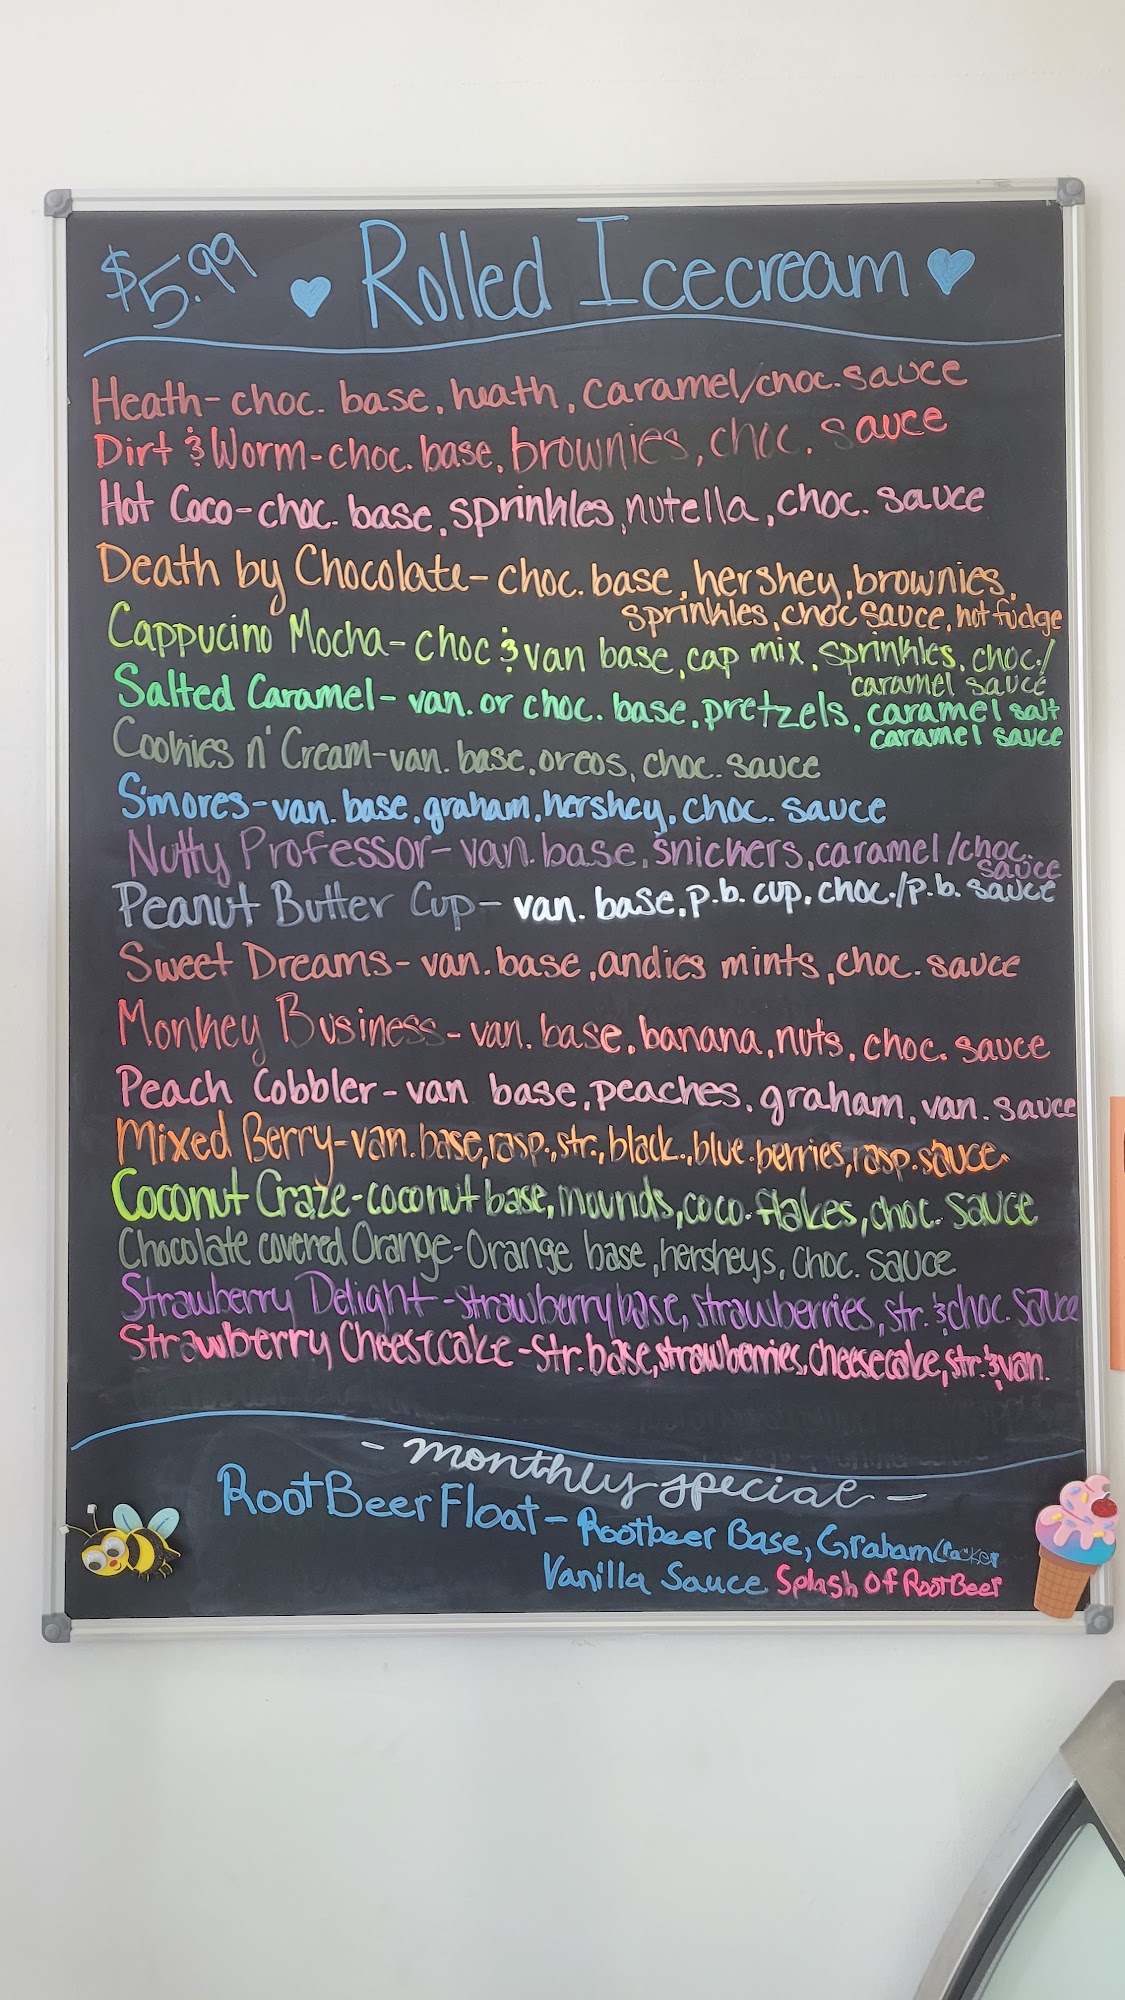 $5.99 Rolled Icecream
Heath- choc. base, heath, caramel/choc. sauce
Dirt & Worm- choc. base, brownies, choc. sauce
Hot Coco- choc. base, sprinkles, nutella, choc. sauce
Death by Chocolate- choc. base, hershey, brownies,
sprinkles, choc sauce, hot fudge
Cappucino Mocha- choc & van base, cap mix, sprinkles, choc/
caramel sauce
Salted Caramel- van. or choc. base, pretzels, caramel salt
caramel sauce
Cookies n' Cream- van. base, oreos, choc. sauce
S'mores- van. base, graham, hershey, choc. sauce
Nutty Professor- van. base, snickers, caramel/choc.
sauce
Peanut Butter Cup- van. base, p.b. cup, choc./p.b. sauce
Sweet Dreams- van. base, andies mints, choc. sauce
Monkey Business- van. base, banana, nuts, choc. sauce
Peach Cobbler- van base, peaches, graham, van. sauce
Mixed Berry- van. base, rasp., str., black., blue. berries, rasp. sauce
Coconut Craze- coconut base, mounds, coco. flakes, choc. sauce
Chocolate covered Orange- Orange base, hersheys, choc. sauce
Strawberry Delight- strawberry base, strawberries, str. & choc. sauce
Strawberry Cheesecake- str. base, strawberries, cheesecake, str. & van.
- monthly special -
Root Beer Float- Rootbeer Base, Graham Cracker
Vanilla Sauce Splash of Root Beer